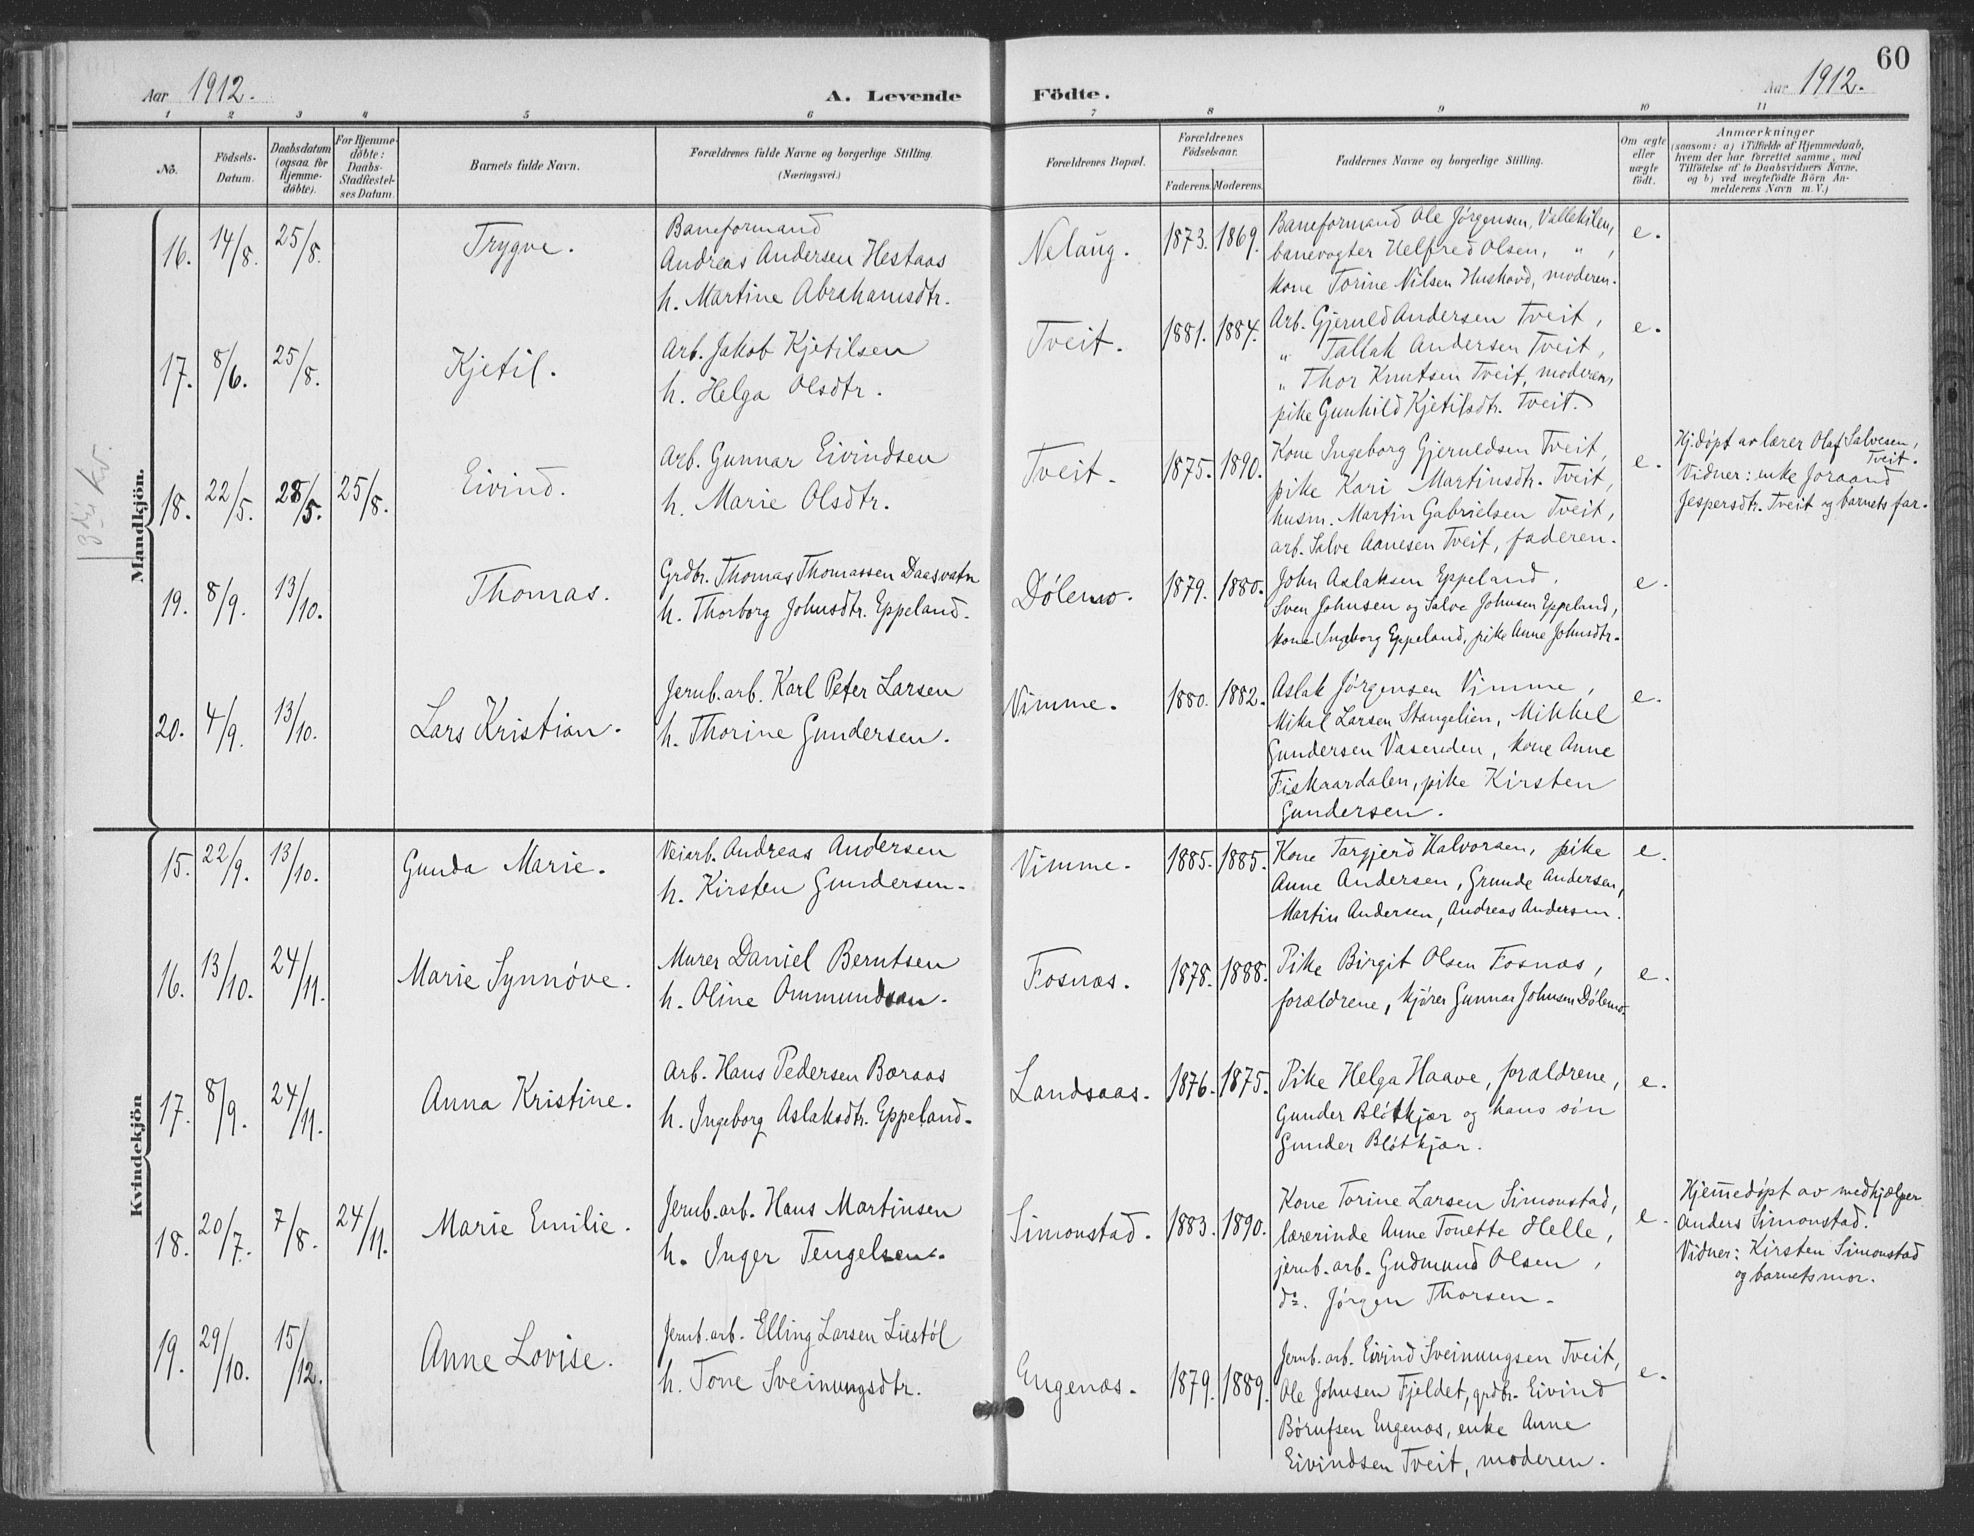 60
Aar 1912.
A. Levende Födte.
Aar 1912.
1 2 3 4 5 6 7 8 9 10 11
No.
Födsels-Datum.
Daabsdatum (ogsaa for Hjemme-döbte).
For Hjemme-döbte: Daabs-Stadfæstel-ses Datum.
Barnets fulde Navn.
Forældrenes fulde Navne og borgerlige Stilling.
(Næringsvei.)
Forældrenes Bopæl.
Forældrenes Födselsaar.
Faderens. Moderens.
Faddernes Navne og borgerlige Stilling.
Om ægte eller uægte født.
Anmærkninger
(saasom: a) i Tilfælde af Hjemmedaab,
hvem der har forrettet samme, med
Tilföielse af to Daabsvidners Navne,
og b) ved uægtefödte Börn An-
melderens Navn m. V.)
Mandkjön.
16. 14/8. 25/8. Trygve.
Baneformand
Andreas Andersen Hestaas
h. Martine Abrahamsdtr.
Nelaug. 1873. 1869.
Baneformand Ole Jørgensen, Vallekilen,
banevogter Helfred Olsen, " ,
kone Torine Nilsen Huskavd, moderen.
e.
17. 8/6. 25/8. Kjetil.
Arb. Jakob Kjetilsen
h. Helga Olsdtr.
Tveit. 1881. 1884.
Arb. Gjeruld Andersen Tveit,
" Tallak Andersen Tveit,
" Thor Knutsen Tveit, moderen,
pike Gunhild Kjetilsdtr. Tveit.
e.
18. 22/5. 28/5. 25/8. Eivind.
Arb. Gunnar Eivindsen
h. Marie Olsdtr.
Tveit. 1875. 1890.
Kone Ingeborg Gjeruldsen Tveit,
pike Kari Martinsdtr. Tveit,
husm. Martin Gabrielsen Tveit,
arb. Salve Aanesen Tveit, faderen.
e.
Hj.døpt av lærer Olaf Salvesen,
Tveit.
Vidner: enke Joraand
Jespersdtr. Tveit og barnets far.
19. 8/9. 13/10. Thomas.
Grdbr. Thomas Thomassen Daasvatn
h. Thorborg Johnsdtr. Eppeland.
Dølemo. 1879. 1880.
John Aslaksen Eppeland,
Sven Johnsen og Salve Johnsen Eppeland,
kone Ingeborg Eppeland, pike Anne Johnsdtr.
e.
20. 4/9. 13/10. Lars Kristian.
Jernb.arb. Karl Peter Larsen
h. Thorine Gundersen.
Vimme. 1880. 1882.
Aslak Jørgensen Vimme,
Mikal Larsen Stangelien, Mikkel
Gundersen Vasenden, kone Anne
Fiskaardalen, pike Kirsten
Gundersen.
e.
Kvindekjön
15. 22/9. 13/10. Gunda Marie.
Veiarb. Andreas Andersen
h. Kirsten Gundersen.
Vimme. 1885. 1885.
Kone Targjerd Halvorsen, pike
Anne Andersen, Grunde Andersen,
Martin Andersen, Andreas Andersen.
e.
16. 13/10. 24/11. Marie Synnøve.
Murer Daniel Berntsen
h. Oline Ommundsen.
Fosnæs. 1878. 1888.
Pike Birgit Olsen Fosnæs,
forældrene, kjører Gunnar Johnsen Dølemo.
e.
17. 8/9. 24/11. Anna Kristine.
Arb. Hans Pedersen Baraas
h. Ingeborg Aslaksdtr. Eppeland.
Landsaas. 1876. 1875.
Pike Helga Haave, forældrene,
Gunder Bløtkjær og hans søn
Gunder Bløtkjær.
e.
18. 20/7. 7/8. 24/11. Marie Emilie.
Jernb.arb. Hans Martinsen
h. Inger Tengelsen.
Simonstad. 1883. 1890.
Kone Torine Larsen Simonstad,
lærerinde Anne Tonette Helle,
jernb.arb. Gudmund Olsen,
do. Jørgen Thorsen.
e.
Hjemmedøpt av medhjælper
Anders Simonstad.
Vidner: Kirsten Simonstad
og barnets mor.
19. 29/10. 15/12. Anne Lovise.
Jernb.arb. Elling Larsen Liestøl
h. Tone Sveinungsdtr.
Engenæs. 1879. 1889.
Jernb.arb. Eivind Sveinungsen Tveit,
Ole Johnsen Fjeldet, grdbr. Eivind
Børufsen Engenæs, enke Anne
Eivindsen Tveit, moderen.
e.